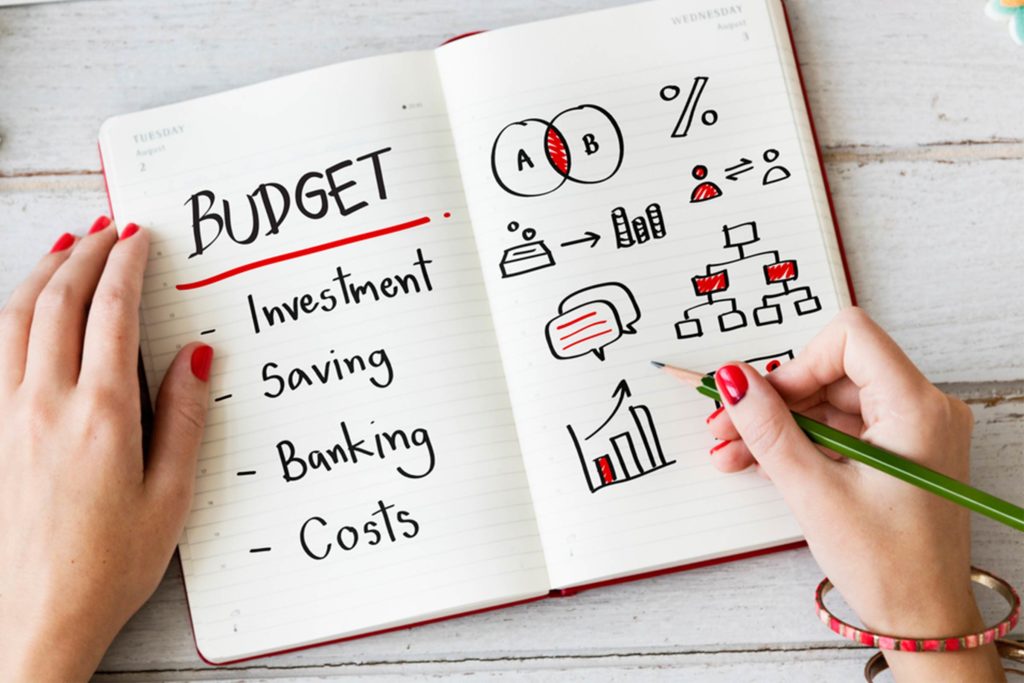 TUESDAY
August
2
BUDGET
- Investment
- Saving
- Banking
- Costs
WEDNESDAY
August
3
A B
%